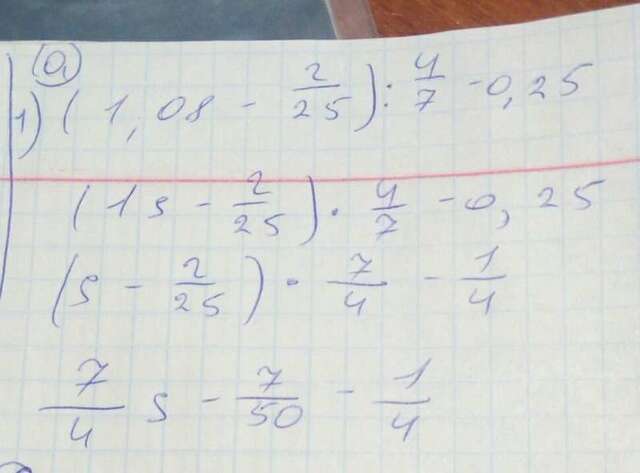 а
1) (1,08 - 2/25) : 4/7 - 0,25
(1s - 2/25) · 4/7 - 0,25
(s - 2/25) · 7/4 - 1/4
7/4 s - 7/50 - 1/4